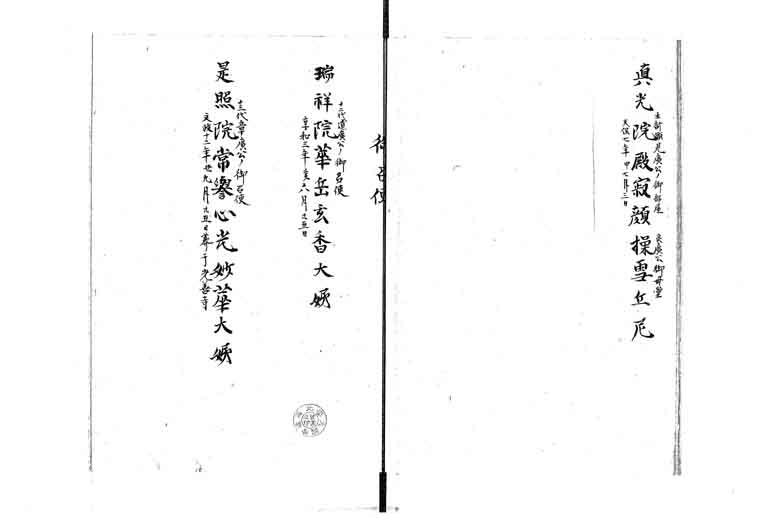 真光院殿寂顔操雪丘尼
良廣公御母堂
天保七年申七月三日
御召使
瑞祥院華岳玄香大姉
十二代道廣公ノ御召使
享和三年亥六月廿五日
是照院常譽心光妙華大姉
十三代章廣公ノ御召使
文政十二年丑九月廿五日葬于光善寺